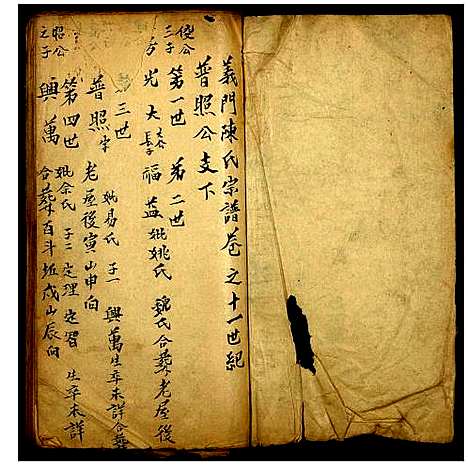 義門陳氏宗譜卷之十一世紀
普照公支下
第一世 第二世
俊公
三子
光大 長子 福益 妣姚氏 魏氏合葬老屋後
三世
普照 妣易氏 子一 興萬 生卒未詳合葬
老屋後寅山申向
第四世
昭公
之子
興萬 妣余氏 子二 定理 定習 生卒未詳
合葬百斗坵戍山辰向